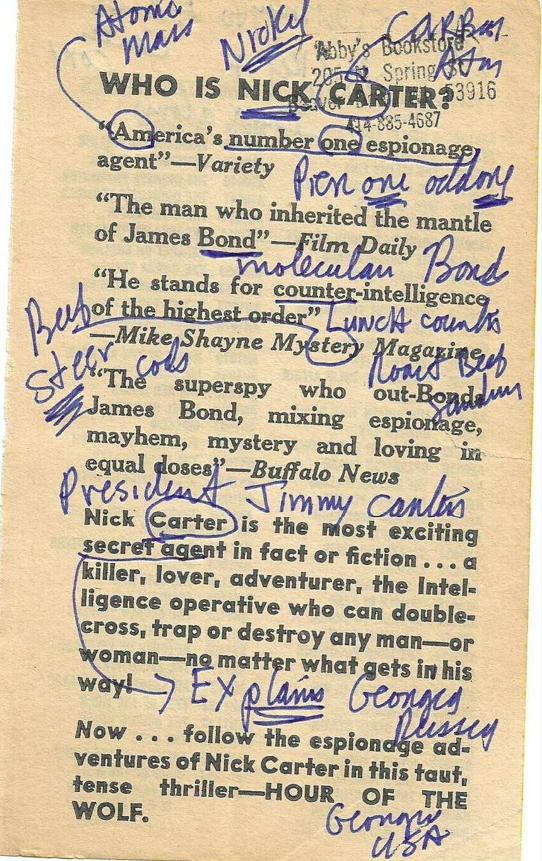 Atomic
Mass
Nicky
Carbon
Atom
Abby's Bookstore
205 Spring St
53916
414-885-4687
WHO IS NICK CARTER?
"America's number one espionage
agent"—Variety
one odd one
"The man who inherited the mantle
of James Bond"—Film Daily
molecular Bond
"He stands for counter-intelligence
of the highest order"
Lunch counter
—Mike Shayne Mystery Magazine
Beef
Steer
Roast Beef
"The superspy who out-Bonds
James Bond, mixing espionage,
mayhem, mystery and loving in
equal doses"—Buffalo News
President Jimmy Carter
Nick Carter is the most exciting
secret agent in fact or fiction . . . a
killer, lover, adventurer, the Intel-
ligence operative who can double-
cross, trap or destroy any man—or
woman—no matter what gets in his
way!
Explains Georgia
Now . . . follow the espionage ad-
ventures of Nick Carter in this taut,
tense thriller—HOUR OF THE
WOLF.
Georgia
USA